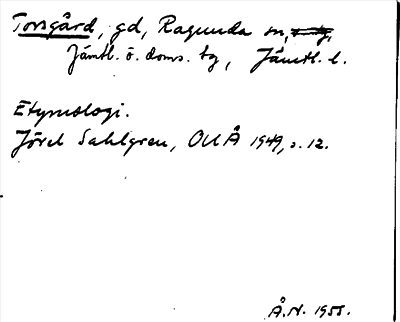 Torsgård, gd, Ragunda sn,
Jämtl. ö. doms. tg, Jämtl. l.
Etymologi.
Jöran Sahlgren, OUÅ 1949, s. 12.
Å.N. 1955.